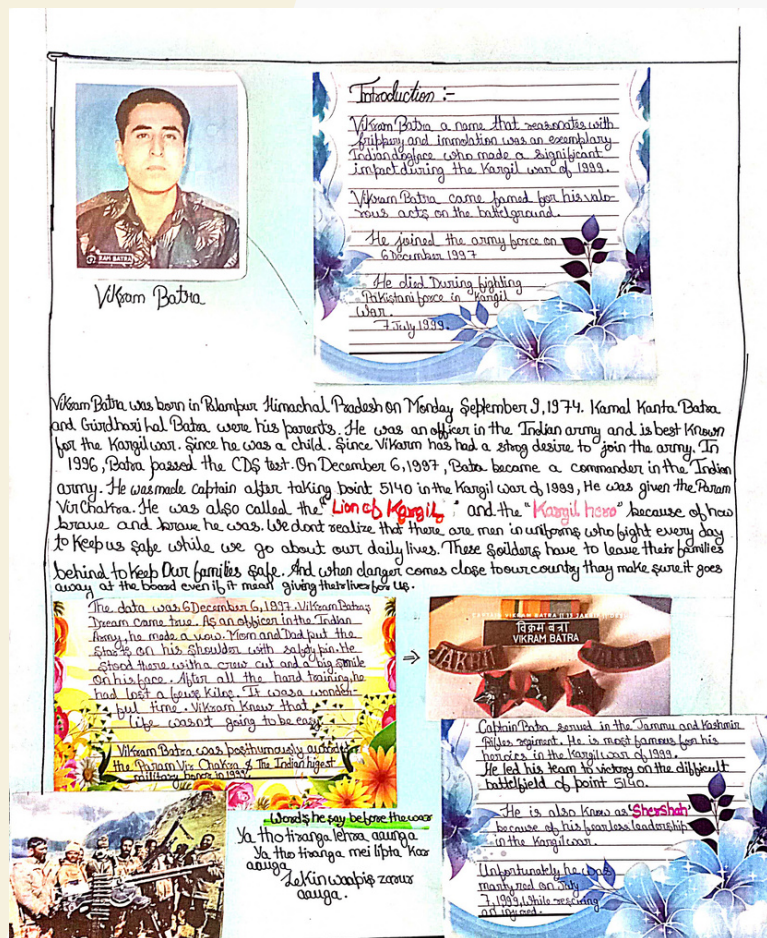 Introduction :-
Vikram Batra a name that reasonates with
frippury and immolation was an exemplary
Indian dogface who made a significant
impact during the Kargil war of 1999.
Vikram Batra came famed for his valo-
rous acts on the battelground.
He joined the army force on
6 December 1997
He died During fighting
Pakistani force in Kargil
War.
7 July 1999.
RAM BATRA
Vikram Batra
Vikram Batra was born in Palampur Himachal Pradesh on Monday September 9, 1974. Kamal Kanta Batra
and Girdhari Lal Batra were his parents. He was an officer in the Indian army and is best Known
for the Kargil war. Since he was a child. Since Vikarm has had a strog desire to join the army. In
1996, Batra passed the CDS test. On December 6, 1997, Bata became a commander in the Indian
army. He was made captain after taking point 5140 in the Kargil war of 1999, He was given the Param
Vir Chakra. He was also called the "Lion of Kargil" and the "Kargil hero" because of how
brave and brave he was. We dont realize that there are men in uniforms who fight every day
to Keep us safe while we go about our daily lives. These soilders have to leave their families
behind to Keep Our families safe. And when danger comes close to our county thay make sure it goes
away at the board even if it mean giving their lives for us.
The data was 6 December 6, 1997. Vikram Batra's
Dream came true. As an officer in the Indian
Army, he made a vow. Mom and Dad put the
Stars on his shoulder with safety pin. He
stood there with a crew cut and a big smile
on his face. After all the hard training, he
had lost a fews kilos. It was a wonder-
ful time. Vikram Knew that
life wasn't going to be easy
Vikram Batra was posthumously awarded
the Param Vir Chakra & The Indian higest
military honor in 1999.
विक्रम बत्रा
VIKRAM BATRA
JAKRIF
Captain Batra served in the Jammu and Kashmir
Rifles regiment. He is most famous for his
heroics in the Kargil war of 1999.
He led his team to victory on the difficult
battelfield of point 5140.
He is also Know as 'SherShah'
because of his fearless leadership
in the Kargil war.
Unfortunately he was
martyred on July
7, 1999, while rescuing
an injured.
Words he say before the war
Ya tho tiranga lehraa aaunga
Ya tho tiranga mei lipta kar
aauga
Lekin waapis zarur
aauga.